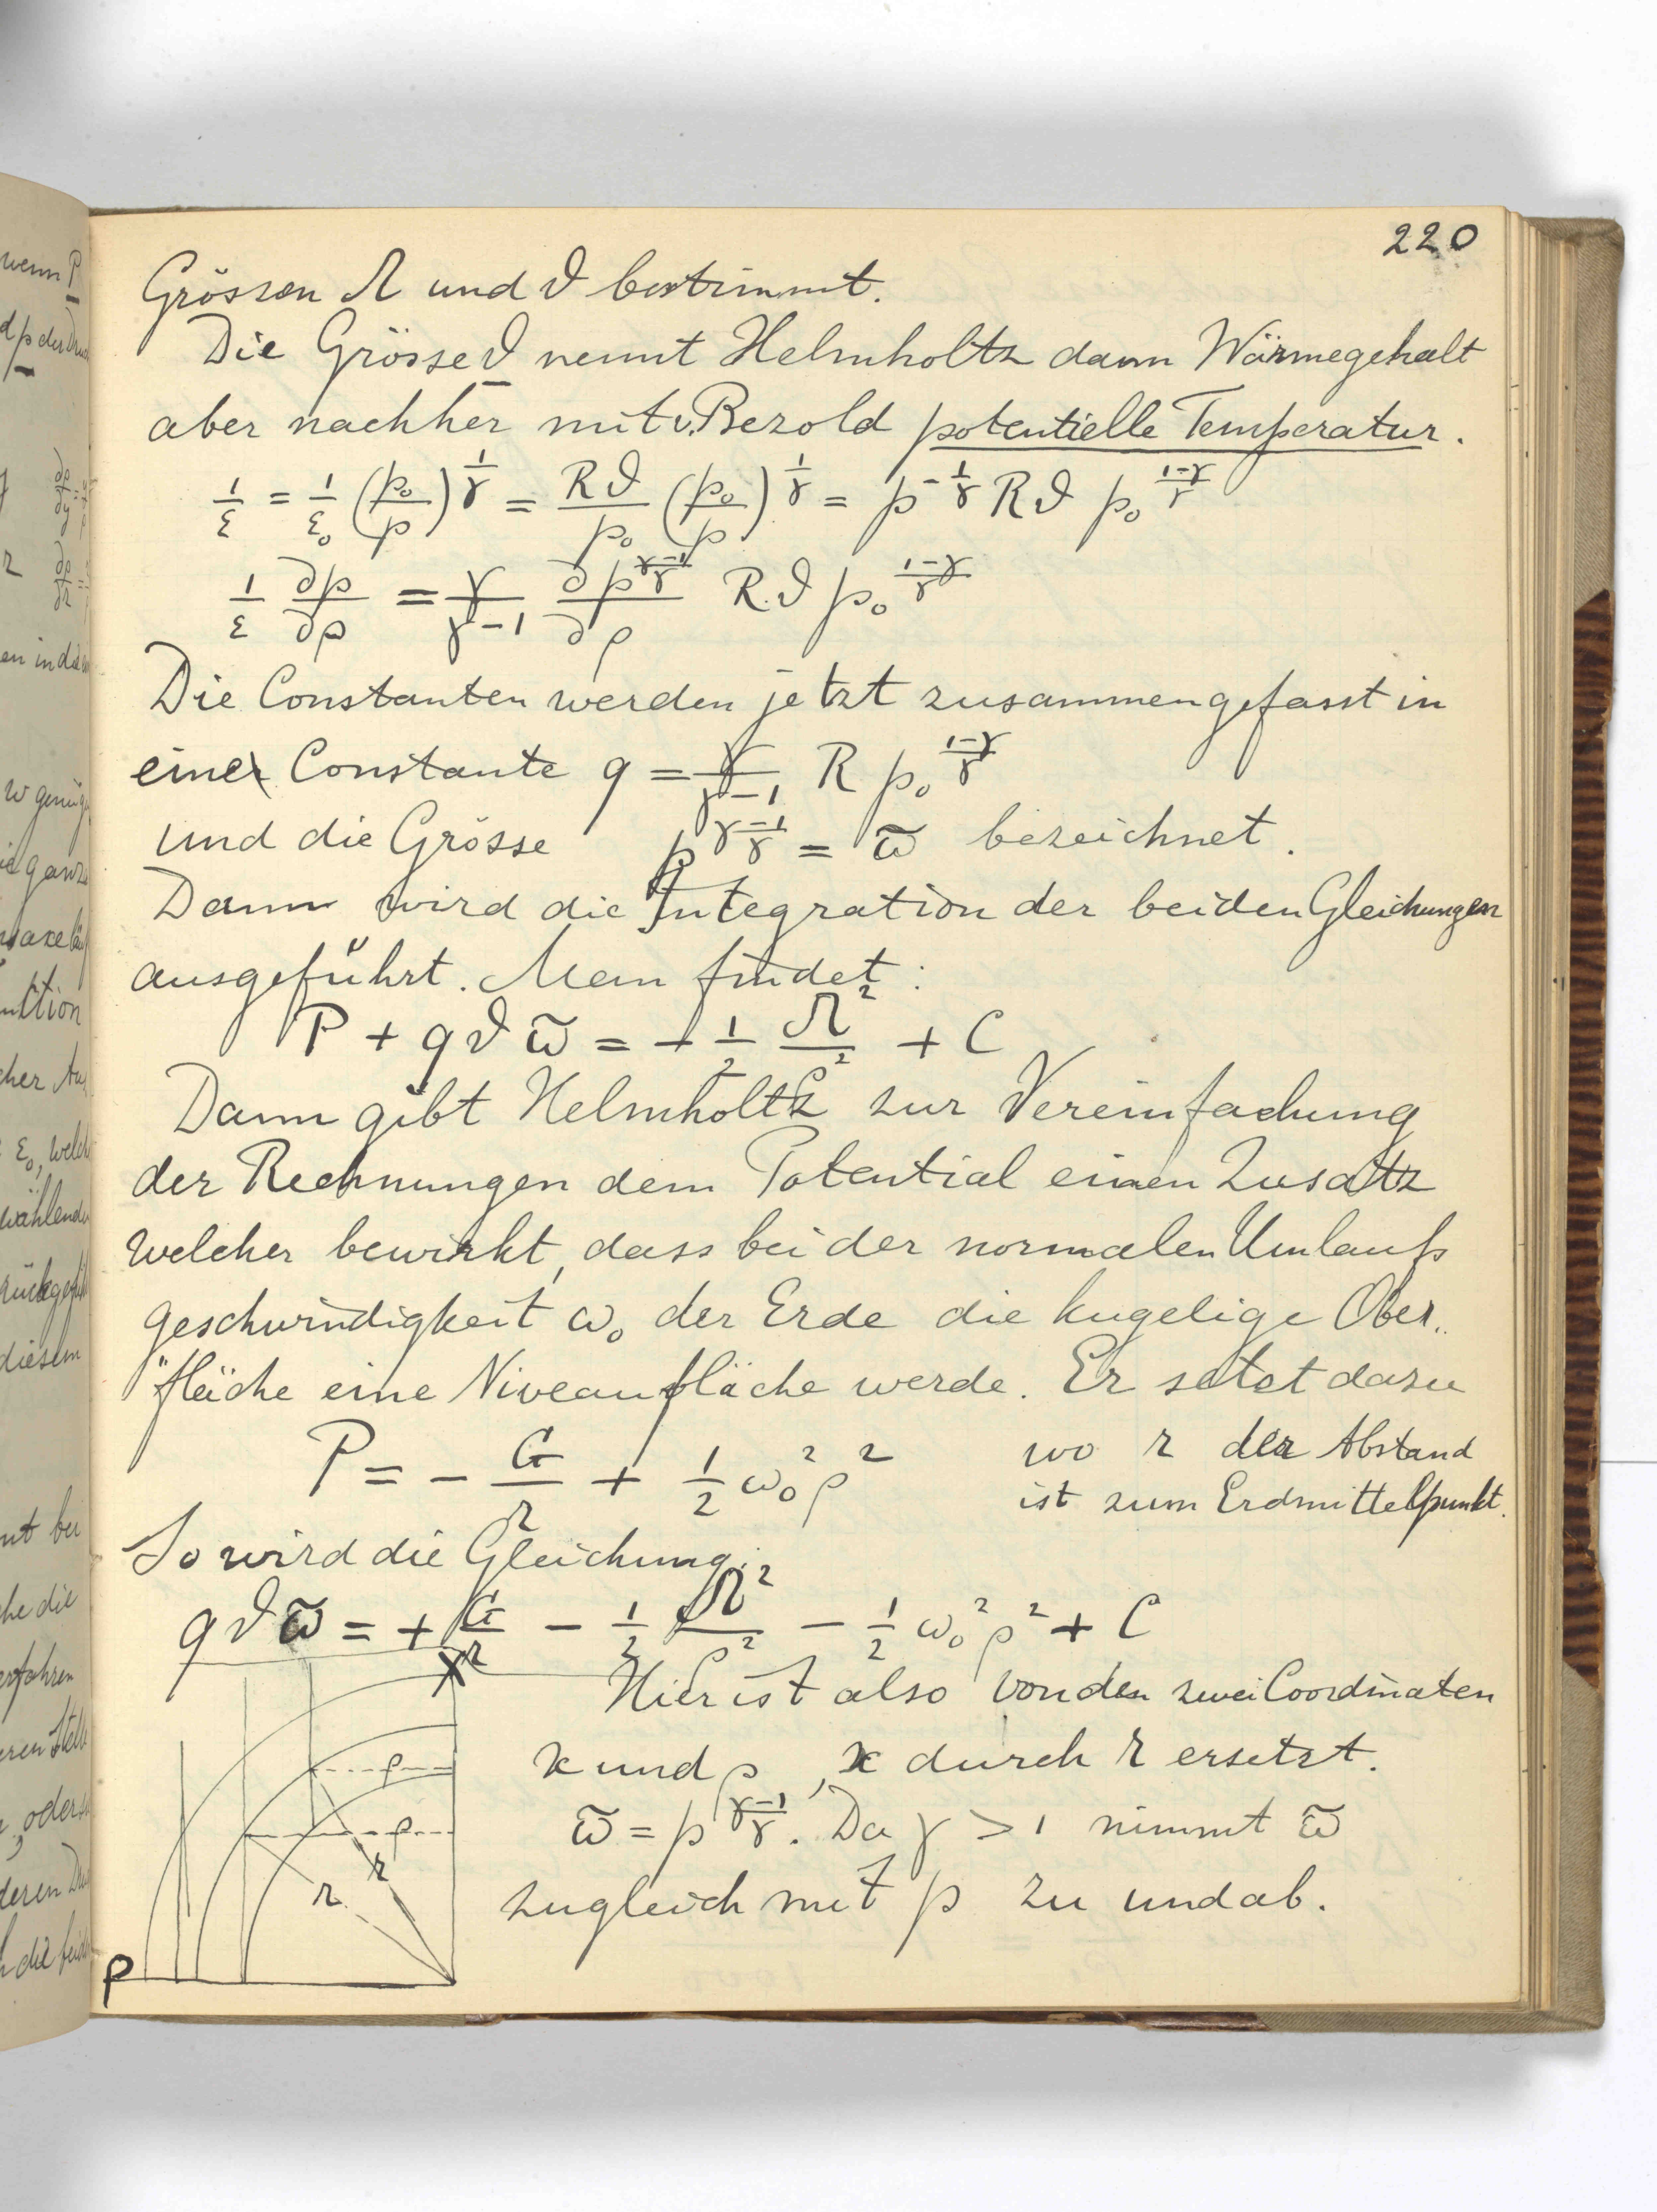 220
Grössen Ω und ϑ bestimmt.
Die Grösse ϑ nennt Helmholtz dann Wärmegehalt
aber nachher mit v. Bezold potentielle Temperatur.
1/ε = 1/ε₀ (p₀/p)^(1/γ) = Rϑ/p₀ (p₀/p)^(1/γ) = p^(-1/γ) Rϑ p₀^((1-γ)/γ)
1/ε ∂p/∂ρ = γ/(γ-1) ∂p^((γ-1)/γ)/∂ρ R.ϑ p₀^((1-γ)/γ)
Die Constanten werden jetzt zusammengefasst in
eine Constante q = γ/(γ-1) R p₀^((1-γ)/γ)
und die Grösse p^((γ-1)/γ) = ϖ bezeichnet.
Dann wird die Integration der beiden Gleichungen
ausgeführt. Man findet:
P + qϑϖ = - 1/2 Ω²/ρ² + C
Dann gibt Helmholtz zur Vereinfachung
der Rechnungen dem Potential einen Zusatz
welcher bewirkt, dass bei der normalen Umlaufs
geschwindigkeit ω₀ der Erde die kugelige Ober„
"fläche eine Niveaufläche werde. Er setzt dazu
P = - G/r + 1/2 ω₀²ρ² wo r der Abstand
ist zum Erdmittelpunkt.
So wird die Gleichung:
qϑϖ = + G/r - 1/2 Ω²/ρ² - 1/2 ω₀²ρ² + C
Hier ist also von den zwei Coordinaten
x und ρ, x durch r ersetzt.
ϖ = p^((γ-1)/γ). Da γ > 1 nimmt ϖ
zugleich mit p zu und ab.
x
ρ
ρ
r
r
ρ
wenn P